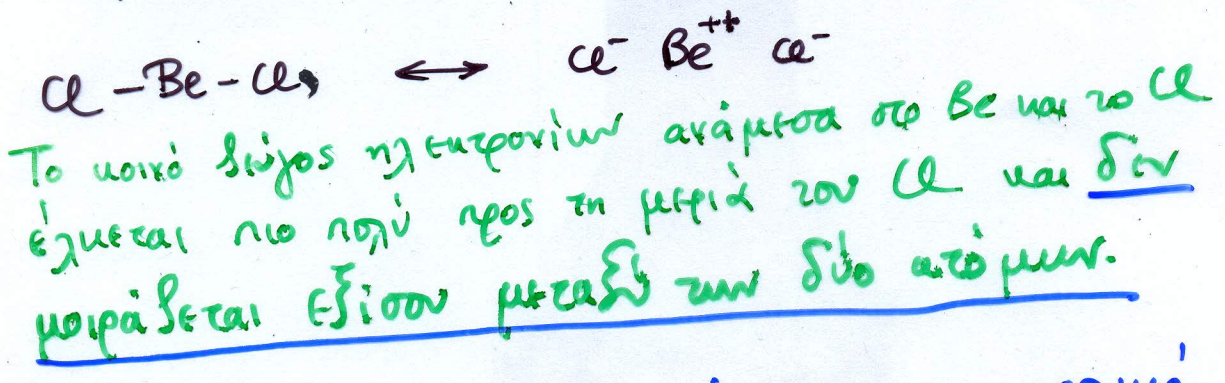 Cl – Be – Cl, ⟷ Cl⁻ Be⁺⁺ Cl⁻
Το κοινό ζεύγος ηλεκτρονίων ανάμεσα στο Be και το Cl
έλκεται πιο πολύ προς τη μεριά του Cl και δεν
μοιράζεται εξίσου μεταξύ των δύο ατόμων.